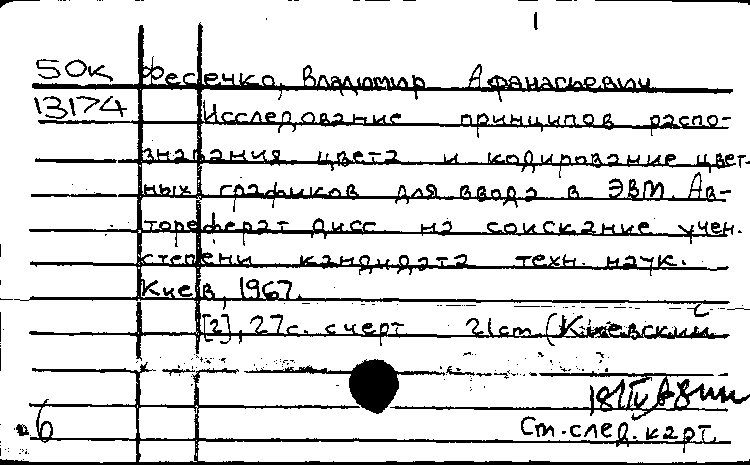 1
50к Фесенко, Владимир Афанасьевич
13174 Исследование принципов распо-
знавания цвета и кодирование цвет-
ных графиков для ввода в ЭВМ. Ав-
тореферат дисс на соискание учен.
степени кандидата техн. наук.
Киев, 1967.
[2], 27с. с черт 21см (Киевский
См. след. карт.
б